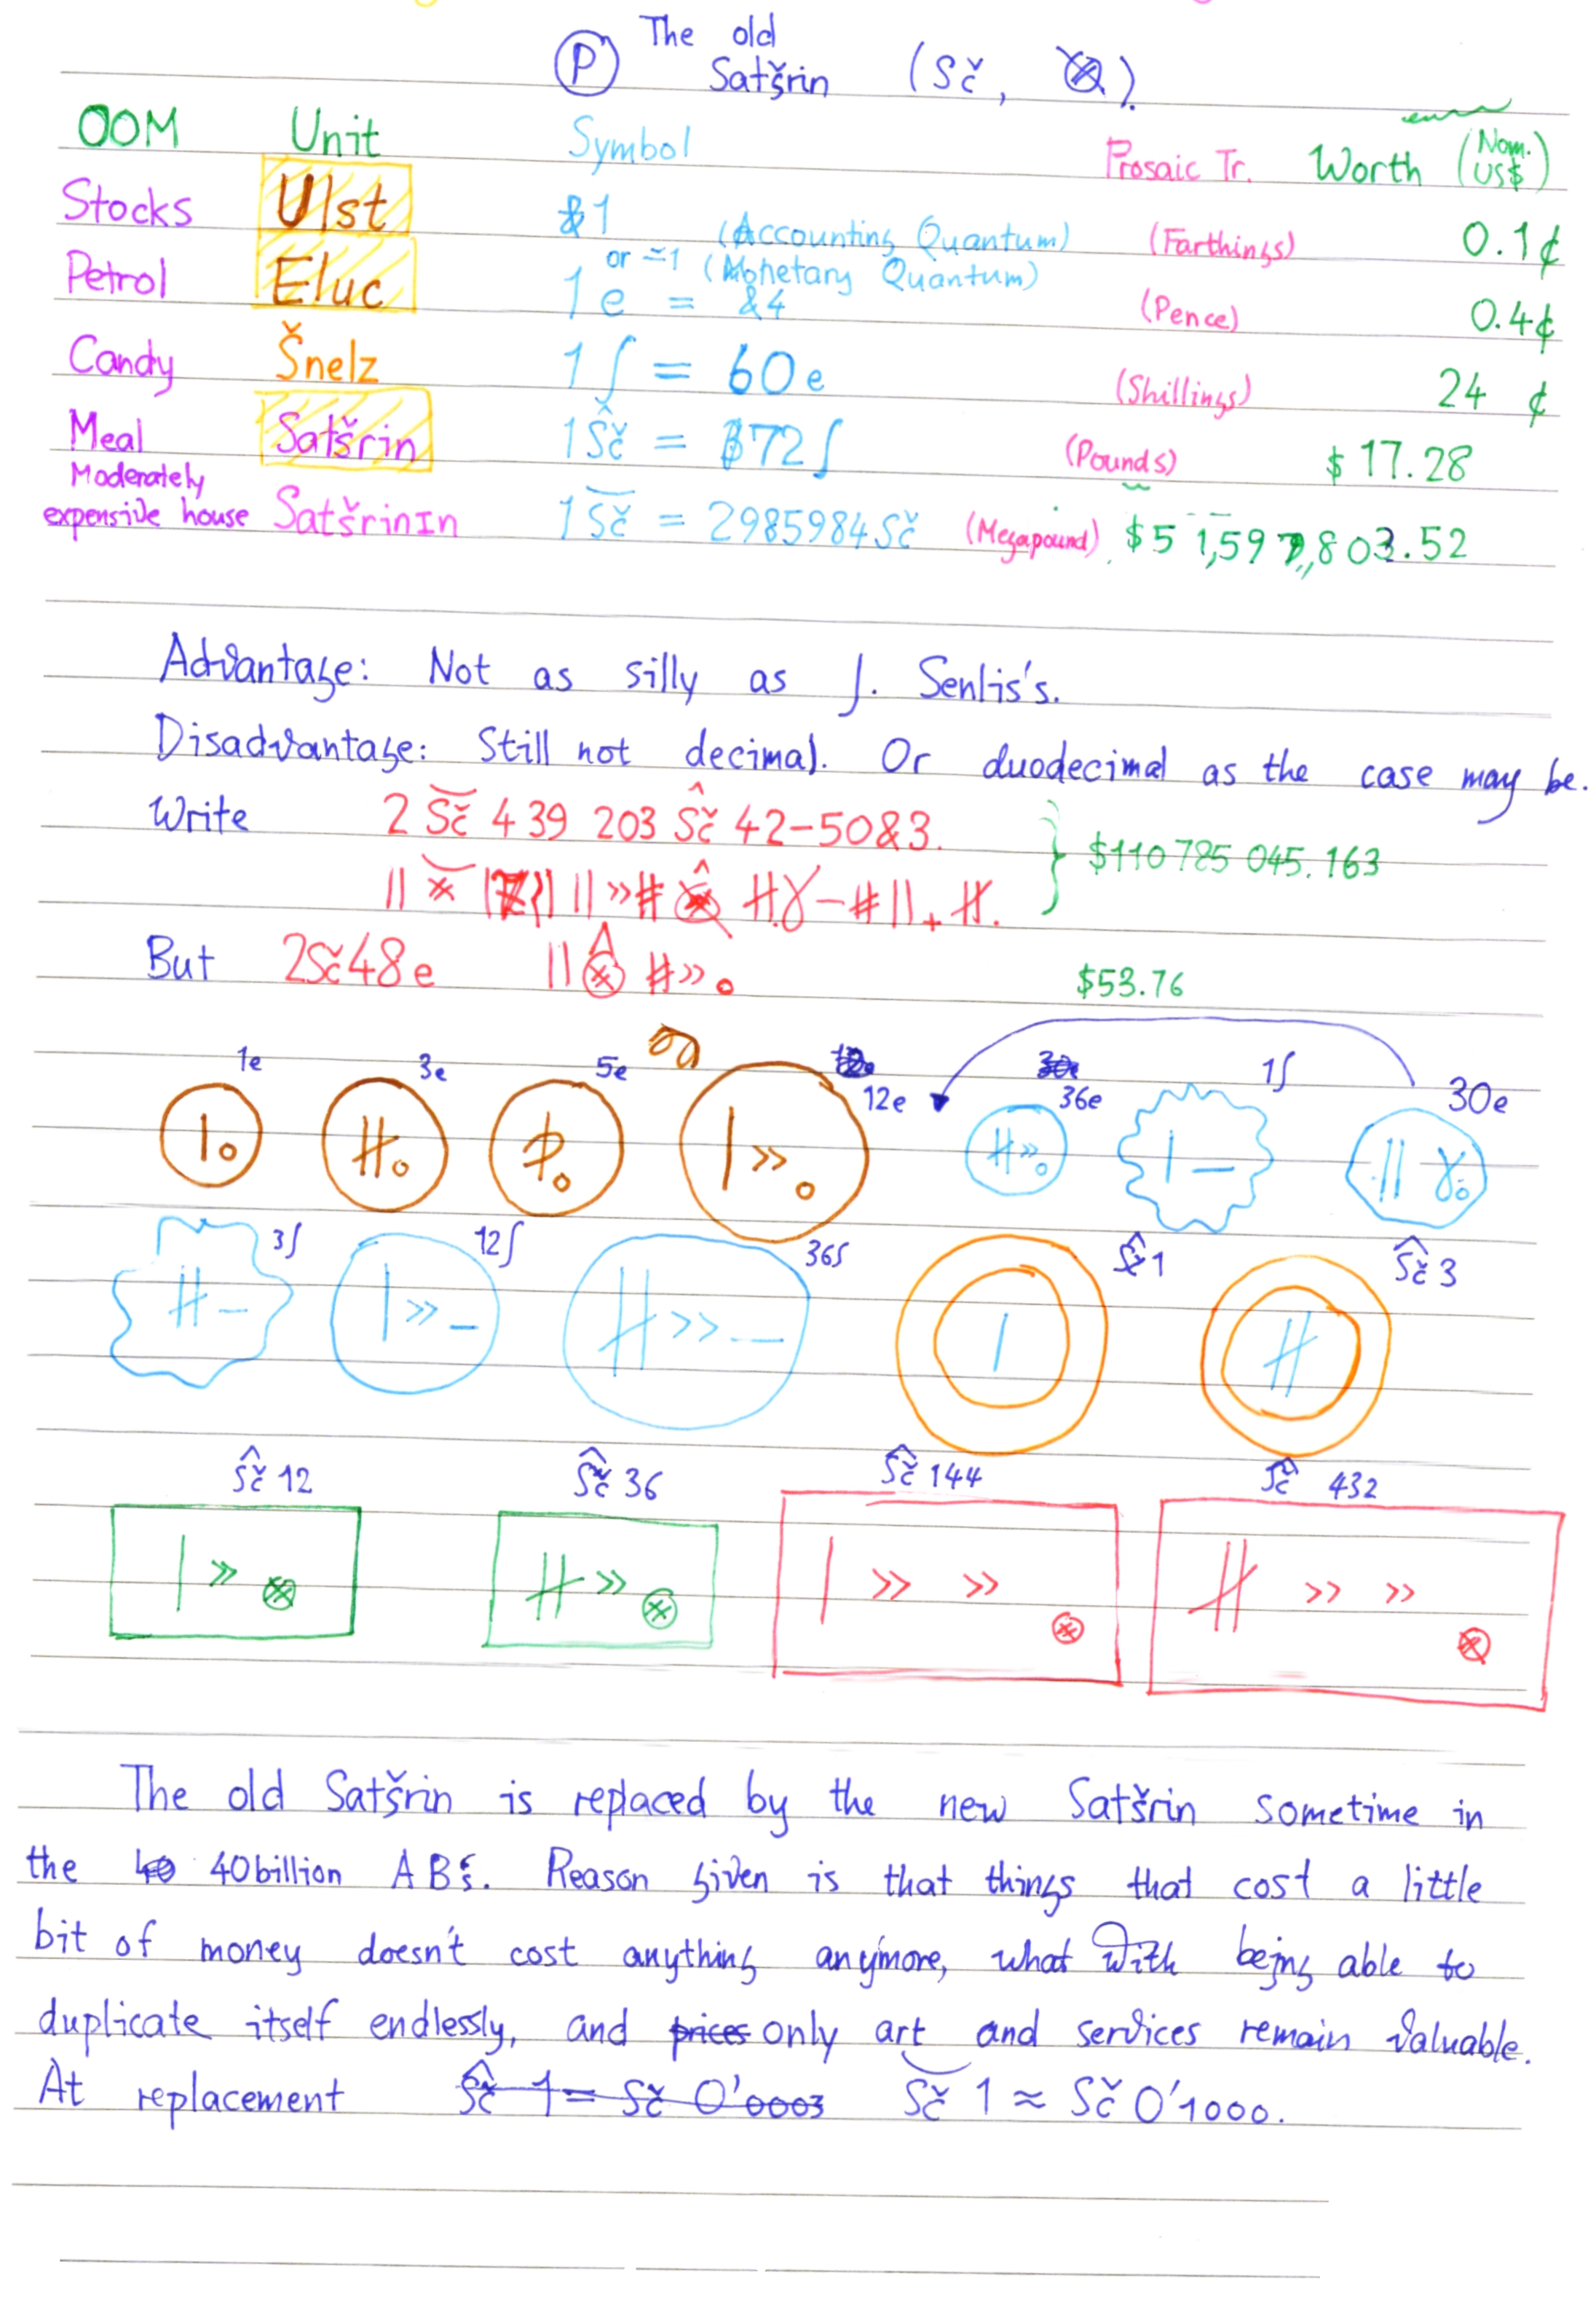 Ⓟ The old
Satšrin (Sč, ).
OOM Unit Symbol Prosaic Tr. Worth (Nom. US$)
Stocks Ulst &1 (Accounting Quantum) (Farthings) 0.1¢
or ≃1 (Monetary Quantum)
Petrol Eluc 1e = &4 (Pence) 0.4¢
Candy Šnelz 1ʃ = 60e (Shillings) 24 ¢
Meal Satšrin 1Sč = 72ʃ (Pounds) $17.28
Moderately
expensive house SatšrinIn 1Sč = 2985984Sč (Megapound) $51,597,803.52
Advantage: Not as silly as J. Senlis's.
Disadvantage: Still not decimal. Or duodecimal as the case may be.
Write 2 Sč 439 203 Sč 42-50&3. } $110 785 045.163
But 2Sč48e $53.76
1e 3e 5e 12e 36e 1ʃ 30e
3ʃ 12ʃ 36ʃ Sč1 Sč3
Sč12 Sč36 Sč144 Sč 432
The old Satšrin is replaced by the new Satšrin sometime in
the 40 40billion ABs. Reason given is that things that cost a little
bit of money doesn't cost anything anymore, what with being able to
duplicate itself endlessly, and prices only art and services remain valuable.
At replacement Sč 1 = Sč 0'0003 Sč 1 ≈ Sč 0'1000.